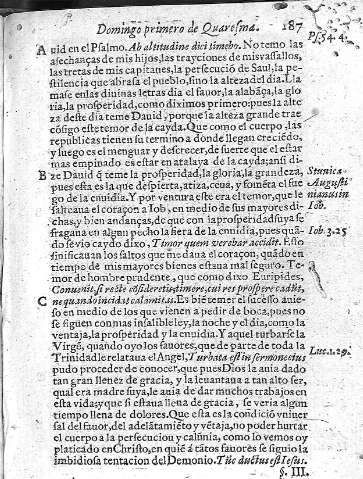 Domingo primero de Quaresma. 187
A uid en el Psalmo. Ab altitudine diei timebo. No temo las
Ps. 54. 4.
asechanças de mis hijos, las trayciones de mis vasallos,
las tretas de mis capitanes, la persecució de Saul, la pe-
stilencia que abrasa el pueblo, sino la alteza del dia. Lla
mase en las diuinas letras dia el fauor, la alabãça, la glo
ria, la prosperidad, como diximos primero: pues la alte
za deste dia teme Dauid, porque la alteza grande trae
cõsigo este temor de la cayda. Que como el cuerpo, las
republicas tienen su termino a donde llegan creciẽdo,
y luego es el menguar y descrecer, de suerte que el estar
mas empinado es estar en atalaya de la cayda; ansi di-
B ze Dauid q̃ teme la prosperidad, la gloria, la grandeza,
pues esta es la que despierta, atiza, ceua, y fomẽta el fue
go de la inuidia. Y por ventura este era el temor, que le
salteaua el coraçon a Iob, en medio de sus mayores di-
chas, y bien andanças, de que con la prosperidad suya se
fragaua en algun pecho la fiera de la inuidia, pues quã-
do se vio caydo dixo, Timor quem verebar accidit. Esto
significauan los saltos que me daua el coraçon, quãdo en
tiempo de mis mayores bienes estaua mal seguro. Te-
mor de hombre prudente, que como dixo Euripides,
Stunica
Augusti
nianus in
Iob.
Iob. 3. 25
Conuenit, si recte cõsideretis, timere, cui res prospere cadũt,
C ne quando incidat calamitas. Es biẽ temer el sucesso auie-
so en medio de los que vienen a pedir de boca, pues no
se siguen con mas infalible ley, la noche y el dia, como la
ventaja, la prosperidad y la inuidia. Y aquel turbarse la
Virgẽ, quando oyo los fauores, que de parte de toda la
Trinidad le relataua el Angel, Turbata est in sermone eius
Luc. 1. 29.
pudo proceder de conocer, que pues Dios la auia dado
tan gran llenez de gracia, y la leuantaua a tan alto ser,
qual era madre suya, le auia de dar muchos trabajos en
esta vida, y que si estaua llena de gracia, se veria algun
tiempo llena de dolores. Que esta es la condiciõ vniuer
sal del fauor, del adelãtamiẽto y vẽtaja, no poder hurtar
el cuerpo a la persecucion y calũnia, como lo vemos oy
platicado en Christo, en quiẽ a tãtos fauores se siguio la
imbidiosa tentacion del Demonio. Tũc ductus est Iesus.
§. III.